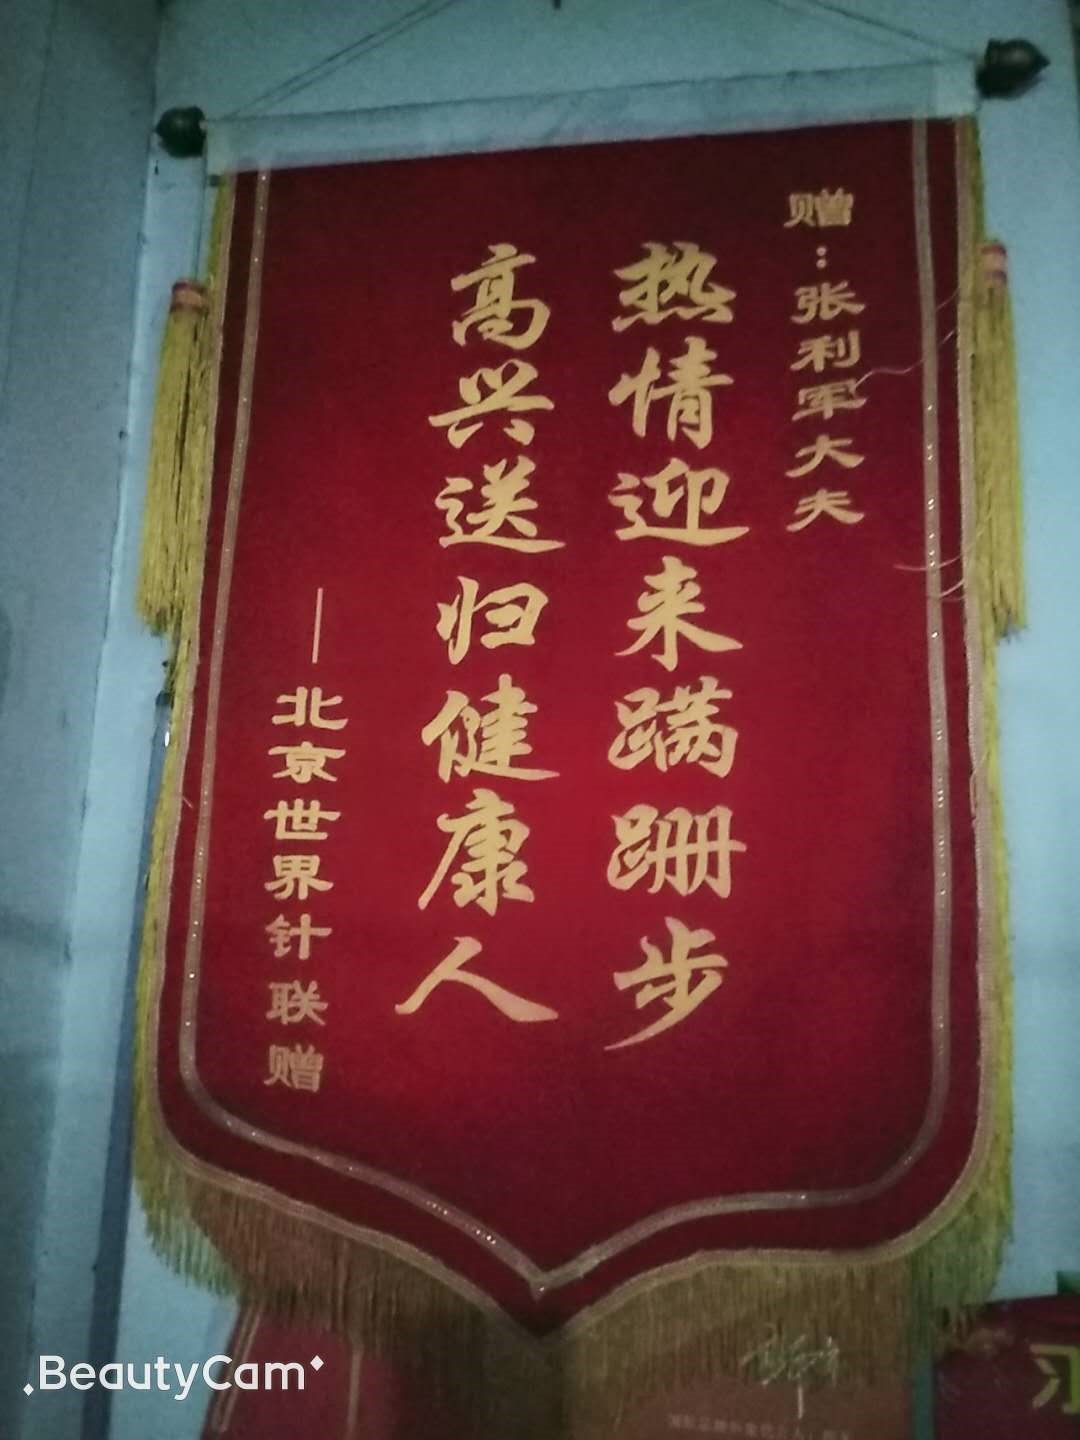 赠：张利军大夫
热情迎来蹒跚步
高兴送归健康人
—北京世界针联赠
BeautyCam
习